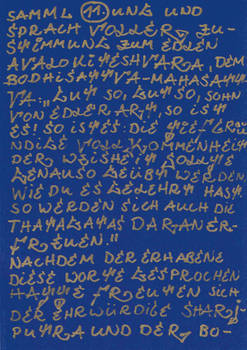 SAMML 11. UNG UND
SPRACH VOLLER ZU-
STIMMUNG ZUM EDLEN
AVALOKITESHVARA, DEM
BODHISATTVA-MAHASATT-
VA: „GUT SO, GUT SO, SOHN
VON EDLER ART, SO IST
ES! SO IST ES: DIE TIEFGRÜ-
NDIGE VOLLKOMMENHEIT
DER WEISHEIT SOLLTE
GENAUSO GEÜBT WERDEN,
WIE DU ES GELEHRT HAST.
SO WERDEN SICH AUCH DIE
THATAGATAS DARAN ER-
FREUEN."
NACHDEM DER ERHABENE
DIESE WORTE GESPROCHEN
HATTE FREUTEN SICH
DER EHRWÜRDIGE SHARI-
PUTRA UND DER BO-